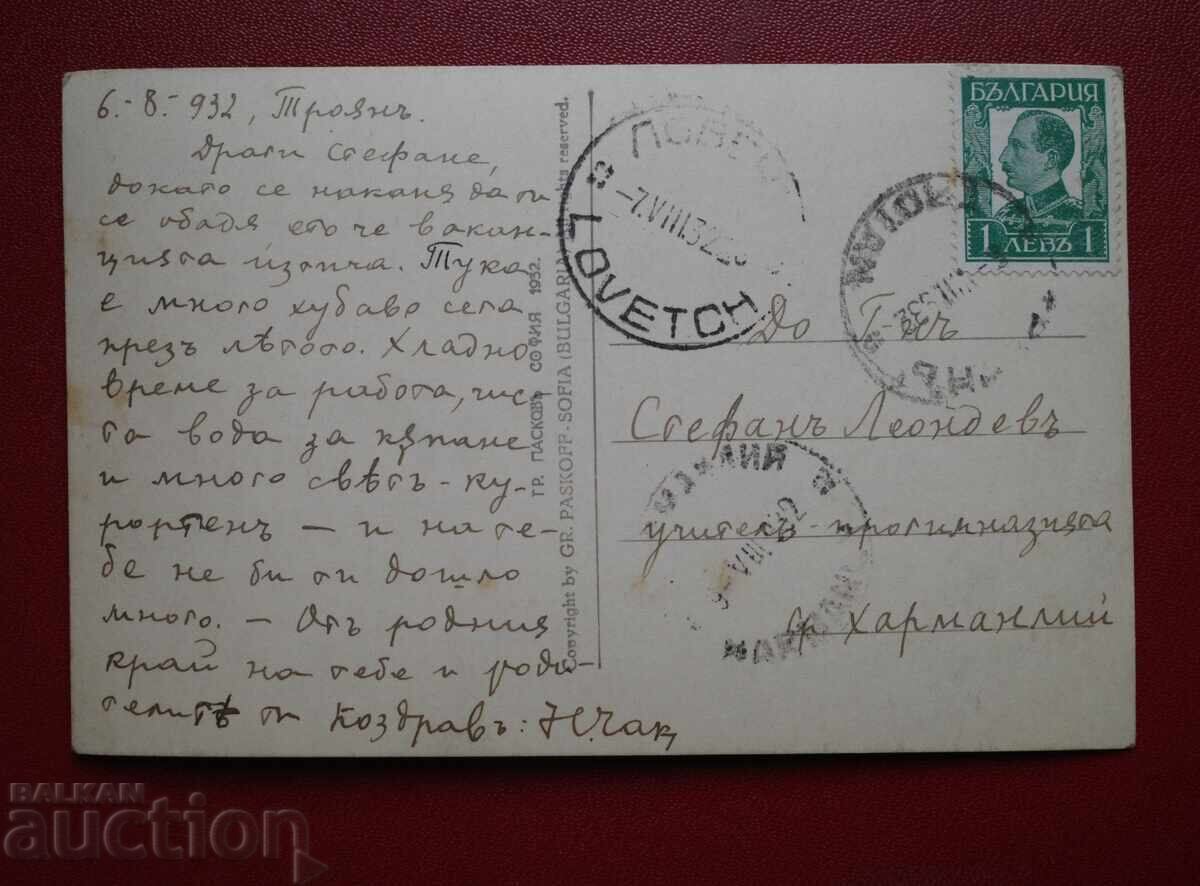 6.-8.-932, Троянъ.
Драги Стефане,
докато се наканя да ти
се обадя ето че вакан-
цията изтича. Тука
е много хубаво сега
презъ лѣтото. Хладно
време за работа, чис-
та вода за къпане
и много свѣтъ - ку-
рортенъ — и на те-
бе не би ти дошло
много. - Отъ родния
край на тебе и роди-
телитѣ ти поздравъ:
ГР. ПАСКОВЪ СОФИЯ 1932.
Copyright by GR. PASKOFF-SOFIA (BULGARIA) rights reserved.
ЛОВЕЧ
-7.VIII.32
LOVETCH
БЪЛГАРИЯ
1 ЛЕВЪ 1
До Г-нъ
Стефанъ Леондевъ
учитель - прогимназията
гр. Харманлий
BALKAN
auction